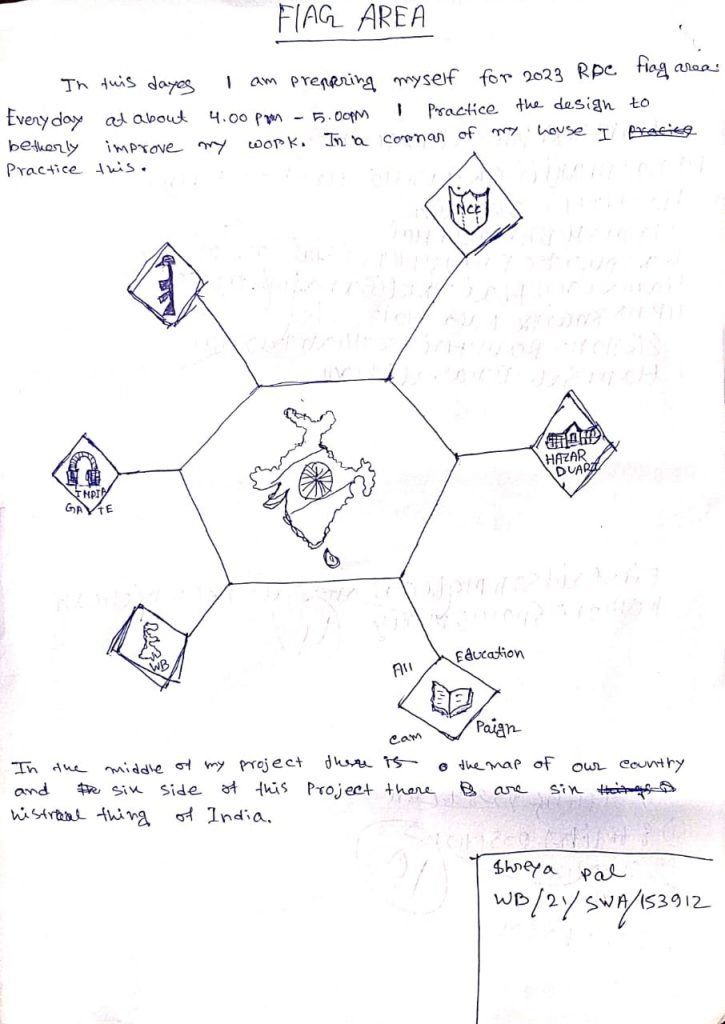 FlAG AREA
In this dayes I am prepering myself for 2023 RDC flag area.
Everyday at about 4.00 pm - 5.00pm I Practice the design to
betherly improve my work. In a cornar of my house I practice
Practice this.
NCC
HAZAR
DUARI
INDIA
GATE
WB
All Education
Cam Paign
In the middle of my project there is the map of our country
and six side of this Project there are six things
histraal thing of India.
Shreya Pal
WB/21/SWA/153912